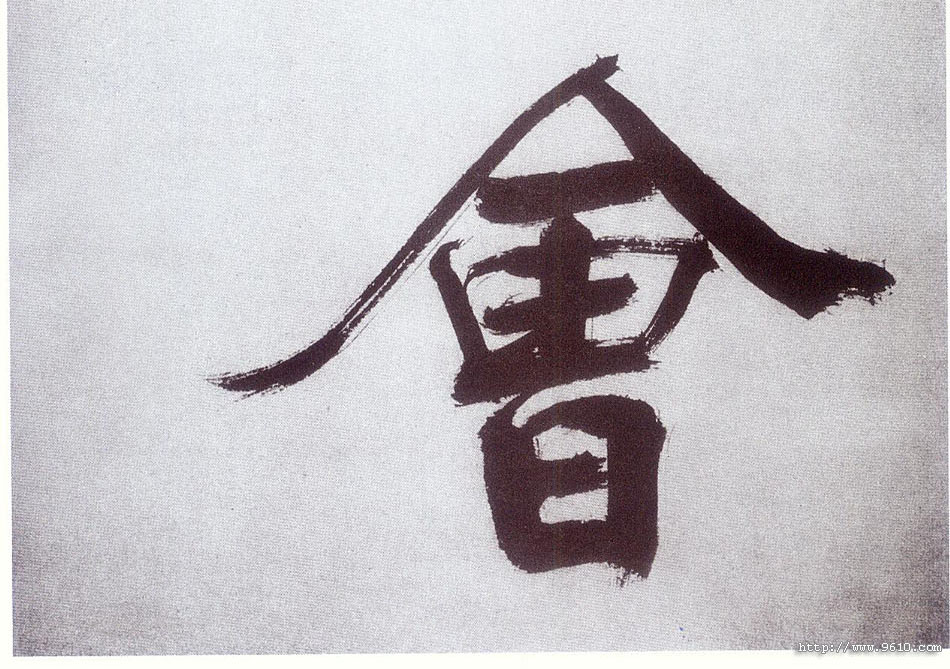 會
http://www.9610.com